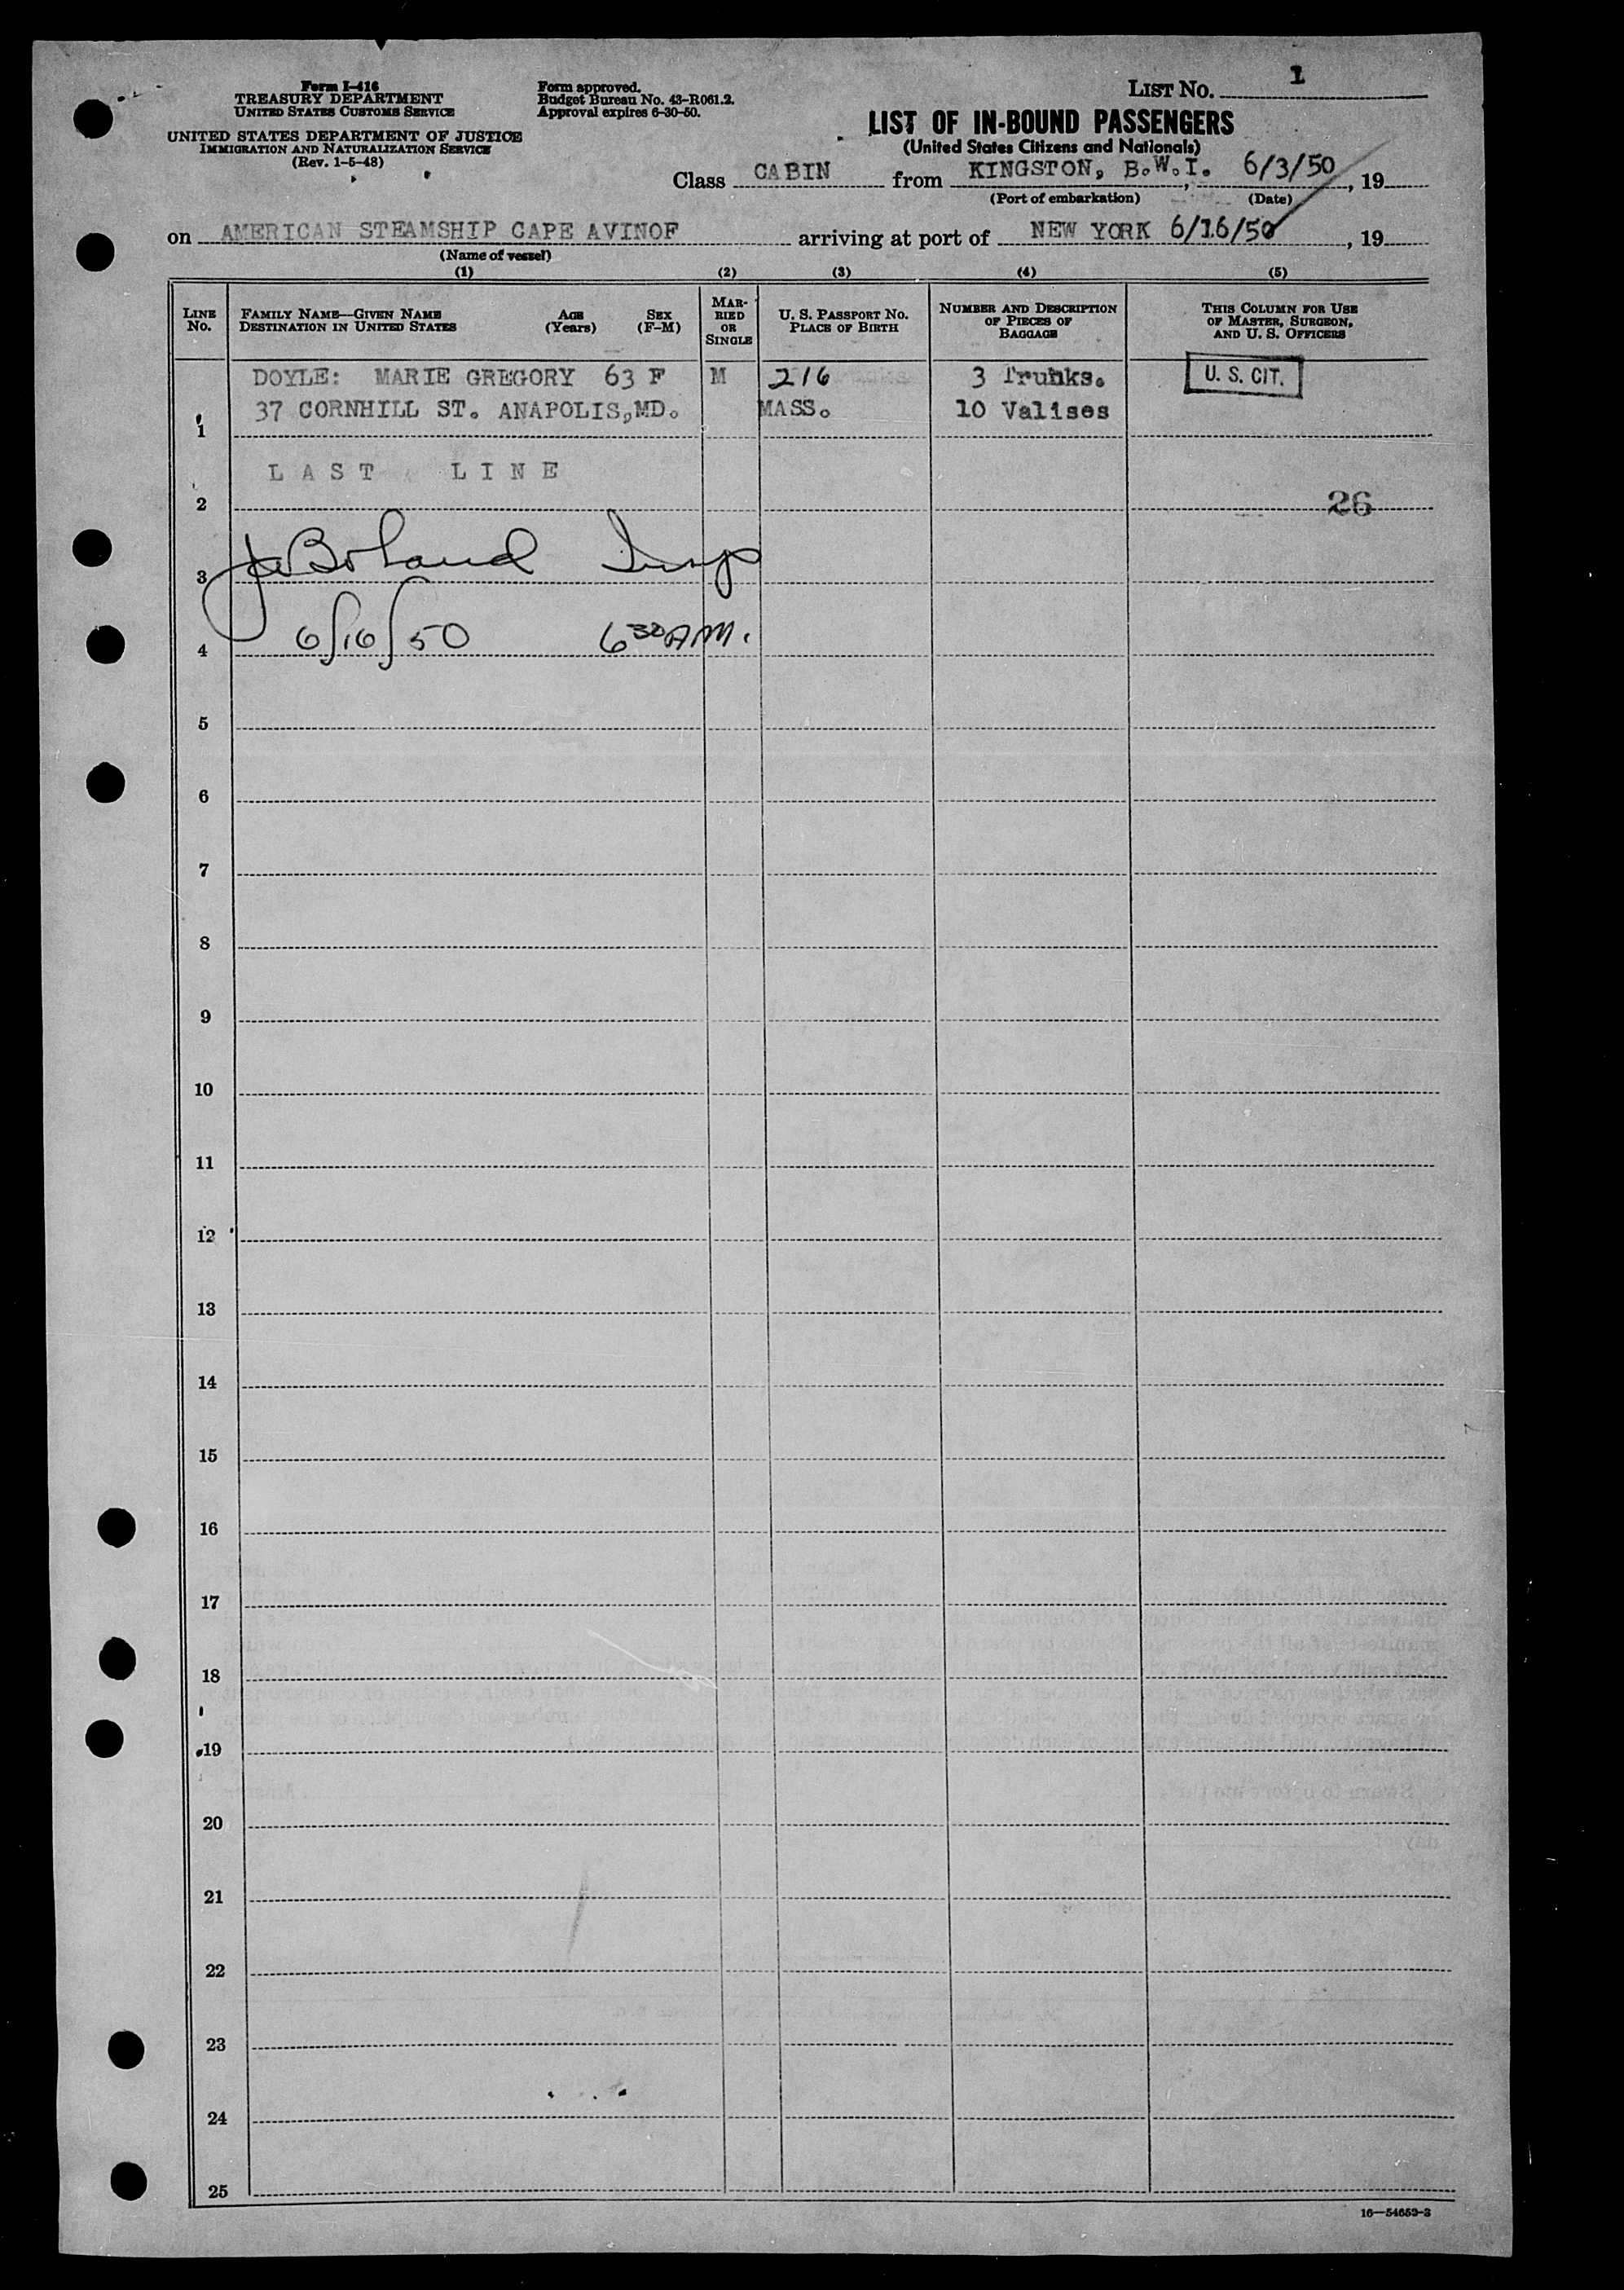 Form I-416
TREASURY DEPARTMENT
UNITED STATES CUSTOMS SERVICE
UNITED STATES DEPARTMENT OF JUSTICE
IMMIGRATION AND NATURALIZATION SERVICE
(Rev. 1-5-48)
Form approved.
Budget Bureau No. 43-R061.2.
Approval expires 6-30-50.
LIST NO. 1
LIST OF IN-BOUND PASSENGERS
(United States Citizens and Nationals)
Class CABIN from KINGSTON, B.W.I. , 6/3/50 , 19
(Port of embarkation) (Date)
on AMERICAN STEAMSHIP CAPE AVINOF arriving at port of NEW YORK 6/16/50 , 19
(Name of vessel)
(1) (2) (3) (4) (5)
LINE NO.
FAMILY NAME—GIVEN NAME AGE SEX
DESTINATION IN UNITED STATES (Years) (F-M)
MAR-
RIED
OR
SINGLE
U. S. PASSPORT NO.
PLACE OF BIRTH
NUMBER AND DESCRIPTION
OF PIECES OF
BAGGAGE
THIS COLUMN FOR USE
OF MASTER, SURGEON,
AND U. S. OFFICERS
DOYLE: MARIE GREGORY 63 F M 216 3 Trunks. U. S. CIT.
37 CORNHILL ST. ANAPOLIS,MD. MASS. 10 Valises
1
LAST LINE
2 26
3 Boland Insp
4 6/16/50 6 30 AM.
5
6
7
8
9
10
11
12
13
14
15
16
17
18
19
20
21
22
23
24
25
16—54652-3